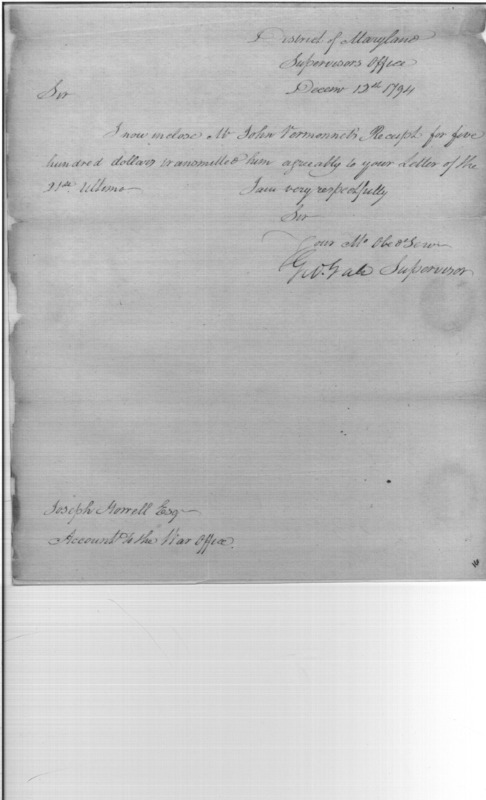 District of Maryland
Supervisors Office
Sir Decemr 12th 1794
I now inclose Mr John Vermonnet's Receipt for five
hundred dollars transmitted him agreeably to your Letter of the
21st. Ultimo I am very respectfully
Sir
Your Mo Obed Serv
Geo. Gale Supervisor
Joseph Howell Esq
Accountt to the War Office.